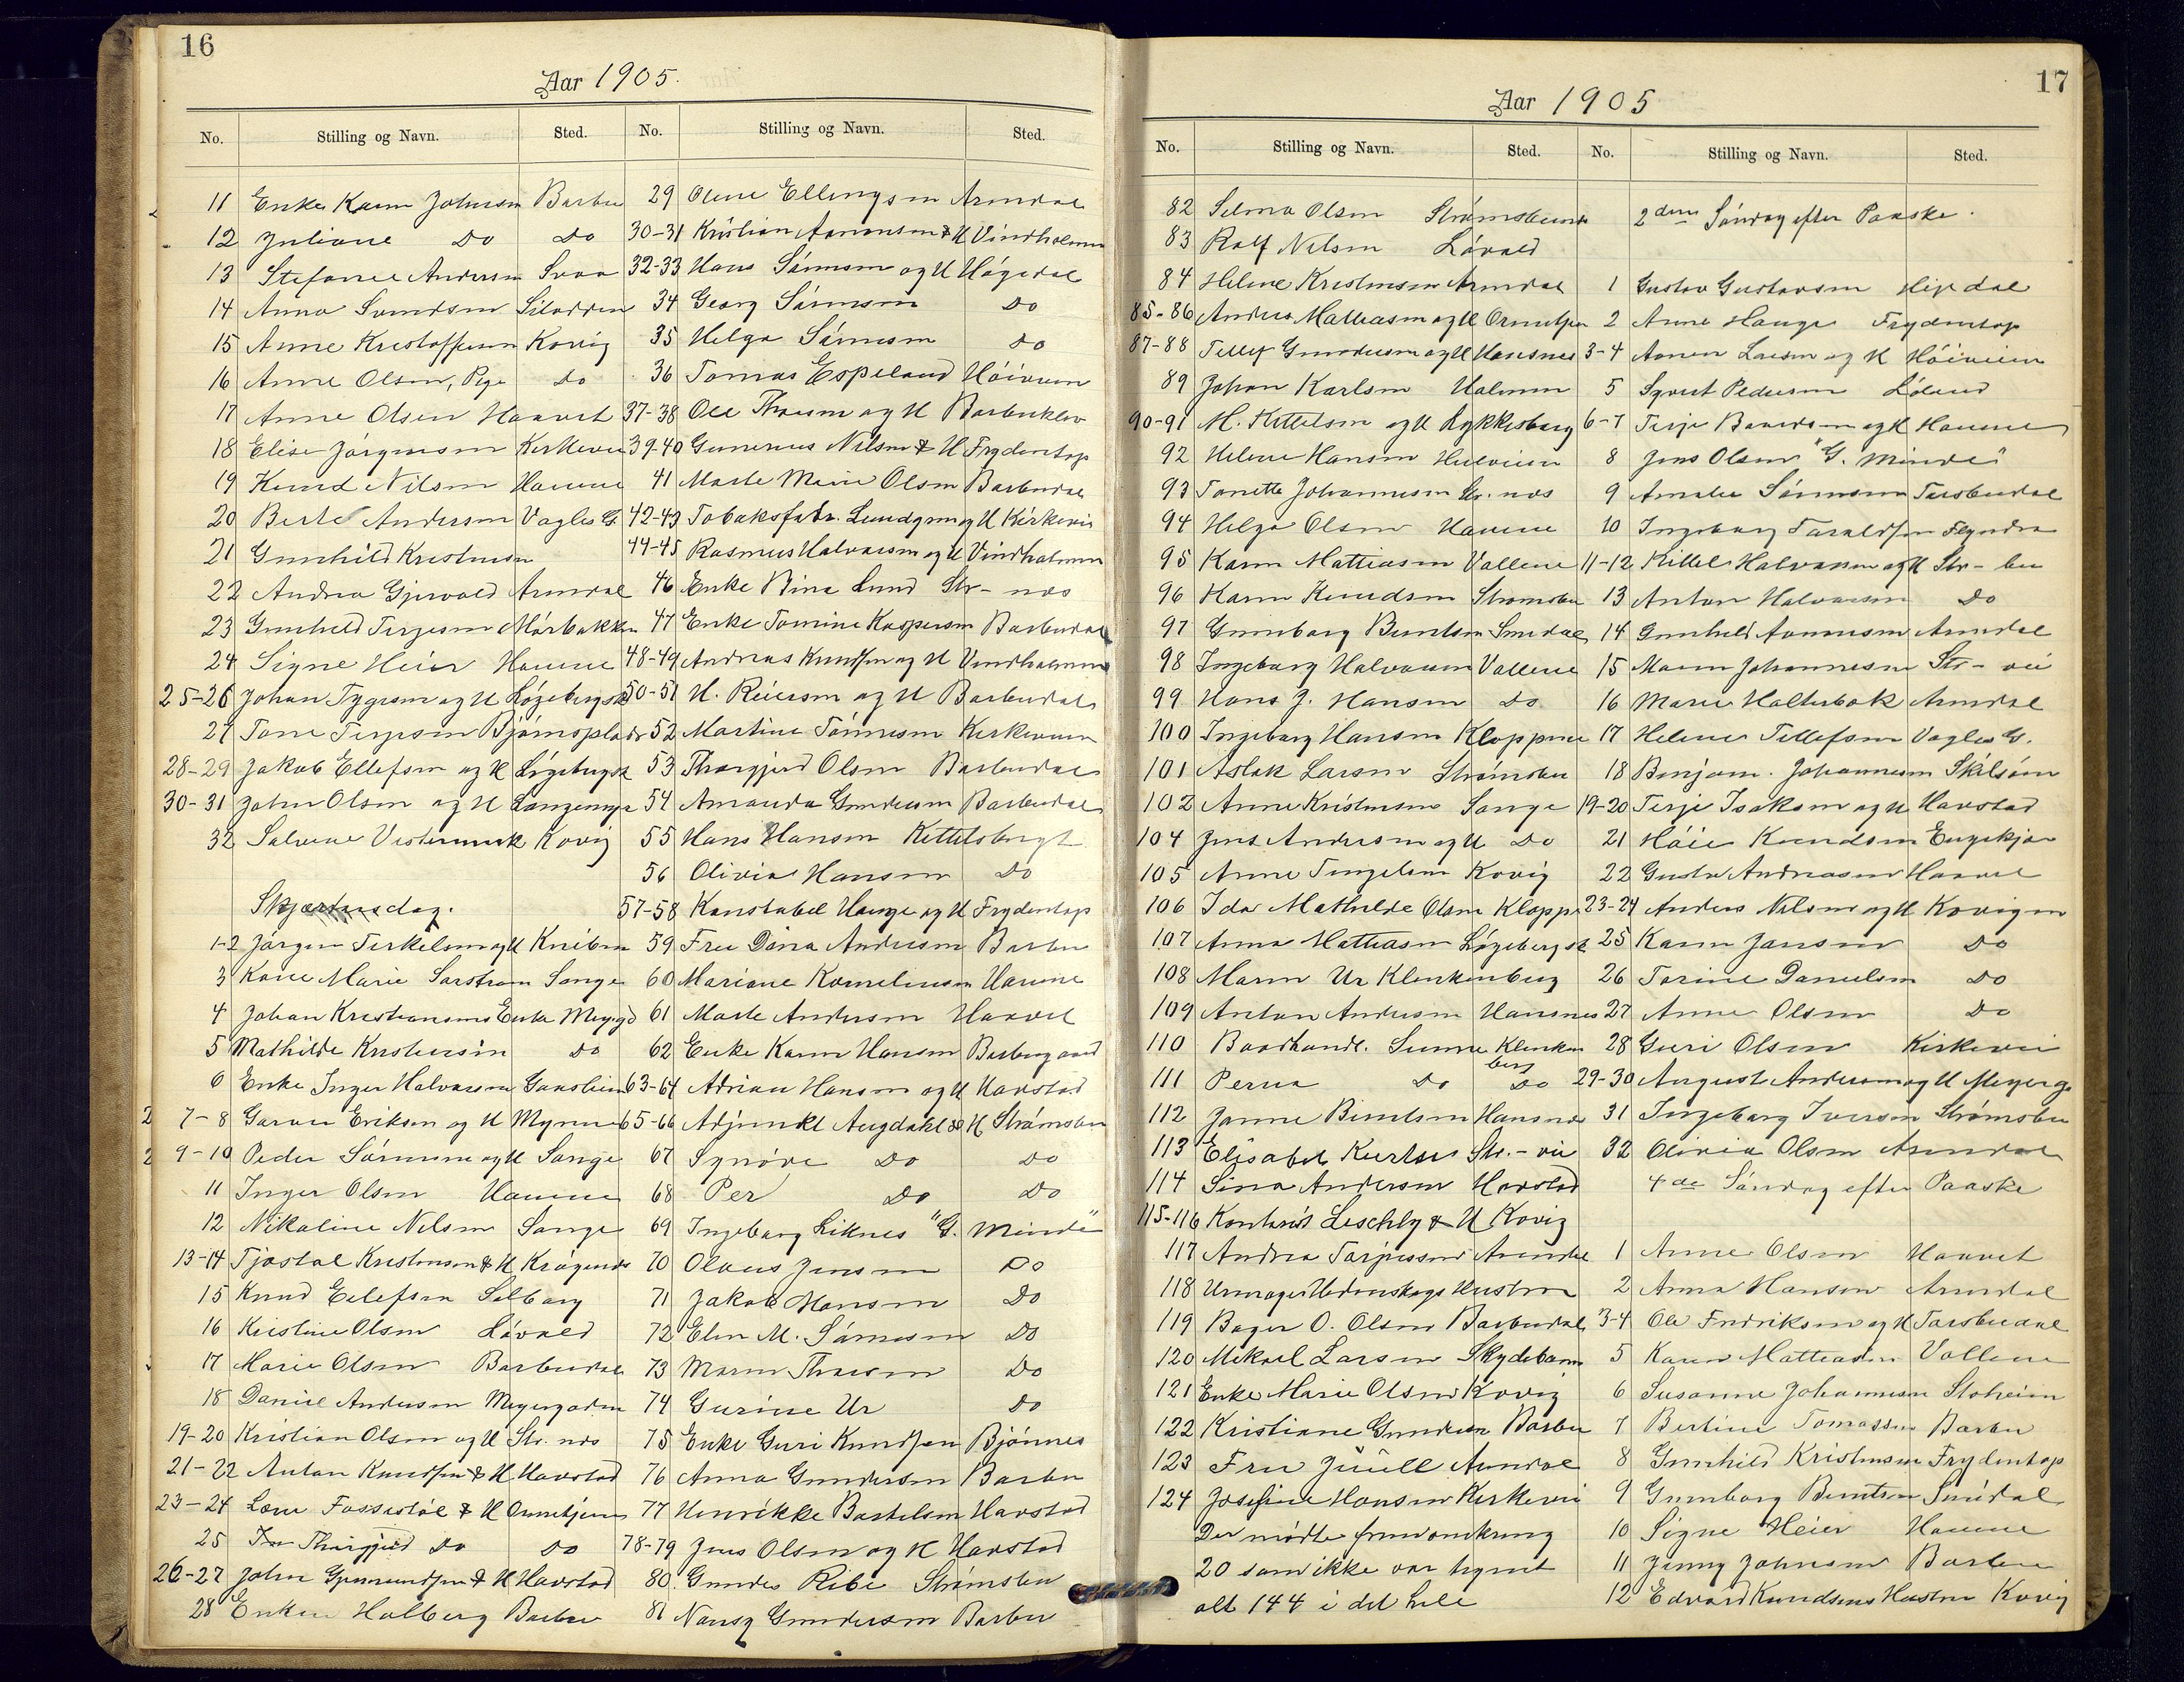 16
Aar 1905.
No. Stilling og Navn. Sted.
11 Enke Karen Johnsen Barbu
12 Juliane Do Do
13 Stefanie Andersen
14 Anna Svendsen
15 Anne Kristoffersen Kovig
16 Anne Olsen, Pige Do
17 Anne Olsen Haavet
18 Elise Jörgensen Kirkevei
19 Knud Nilsen Hamne
20 Berte Andersen Vagles G.
21 Gunhild Kristensen
22 Andrea Gjervold Arendal
23 Gunhild Terjesen Mörbakken
24 Signe Heier Havne
25-26 Johan Tygesen og H Lögebergsk
27 Tone Terjesen Bjørnsplads
28-29 Jakob Ellefsen og H Lögebergsk
30-31 John Olsen og H Langemyr
32 Salvene Vestermark Kovig
Skjærtorsdag.
1-2 Jörgen Terkelsen og H Kniben
3 Karen Marie Sarstrøm Sange
4 Johan Kristiansens Enke Meyrgd
5 Mathilde Kristensen Do
6 Enke Inger Halvorsen Gaaslien
7-8 Garen Eriksen og H Myrene
9-10 Peder Sörensen og H Sange
11 Inger Olsen Havne
12 Nikoline Nilsen Sange
13-14 Tjøstol Kristensen & H Krögenes
15 Knud Eilefsen Solborg
16 Kristine Olsen Lövold
17 Marie Olsen Barbudal
18 Daniel Andersen Meyergaden
19-20 Kristian Olsen og H Str. nes
21-22 Anton Knudsen & H Havstad
23-24 Lars Fossestøl & H Ormetjern
25 Thorgjerd Do Do
26-27 John Gunmundsen & H Havstad
28 Enken Holberg Barbu
No. Stilling og Navn. Sted.
29 Oline Ellingsen Arendal
30-31 Kristian Aanonsen & H Vindholmen
32-33 Hans Sörensen og H Högedal
34 Georg Sörensen Do
35 Helga Sörensen Do
36 Tomas Espeland Höiveien
37-38 Ole Thorsen og H Barbuklev
39-40 Gunerius Nilsen & H Frydentop
41 Marte Marie Olsen Barbudal
42-43 Tobaksfabr. Lundgren og H Kirkevei
44-45 Rasmus Halvorsen og H Vindholmen
46 Enke Stina Lund Str - nes
47 Enke Tomine Kaspersen Barbudal
48-49 Andreas Knudsen og H Vindholmen
50-51 H. Reiersen og H Barbudal
52 Martine Tönnesen Kirkeveien
53 Thorgjerd Olsen Barbudal
54 Amanda Gundersen Barbudal
55 Hans Hansen Kittelsbugt
56 Olivia Hansen Do
57-58 Konstabel Hauge og H Frydentop
59 Fru Dina Andersen Barbu
60 Mariane Kornelinsen Havne
61 Marte Andersen Haavet
62 Enke Karen Hansen Barbugaard
63-64 Adrian Hansen og H Havstad
65-66 Adjunkt Augdahl & H Strømsbu
67 Synöve Do Do
68 Per Do Do
69 Ingeborg Liknes "G. Minde"
70 Olaus Jensen Do
71 Jakob Hansen Do
72 Elen M. Sörensen Do
73 Maren Thorsen Do
74 Gurine Ur Do
75 Enke Guri Knudsen Bjönnes
76 Anna Gundersen Barbu
77 Henrikke Bertelsen Havstad
78-79 Jens Olsen og H Havstad
80. Gundes Ribe Strømsbu
81 Nansy Gundersen Barbu
17
Aar 1905
No. Stilling og Navn. Sted.
82 Selma Olsen Strømsbu
83 Rolf Nilsen Lövold
84 Helene Kristensen Arendal
85-86 Anders Mathiasen og H Ormetjen
87-88 Tellef Gundersen og H Hansnes
89 Johan Karlsen Holmen
90-91 M. Kittelsen og H Lykkesborg
92 Helene Hansen
93 Tonette Johannesen Str. nes
94 Helga Olsen Havne
95 Karen Mattiasen Vollene
96 Karen Knudsen Strømsbu
97 Gunborg Berntsen Smedal
98 Ingeborg Halvorsen Vollene
99 Hans J. Hansen Do
100 Ingeborg Hansen Kloppene
101 Aslak Larsen Strømsbu
102 Anne Kristensen Sange
104 Jens Andersen og H Do
105 Anne Tengelsen Kovig
106 Ida Mathilde Olsen Klopp
107 Anna Mattiasen Lögebergsk
108 Maren Ur Klenkenberg
109 Anton Andersen Hansnes
110 Baadhandl. Sunne Klenken
berg
111 Perna Do Do
112 Janne Berntsen Hansnes
113 Elisabet Kurtsen Str. - vei
114 Sina Andersen Havstad
115-116 Kontorist Leschly & H Kovig
117 Andrea Torjussen Arendal
118 Urmager Hedenskogs Hustru
119 Bager O. Olsen Barbudal
120 Mekael Larsen Skydebanen
121 Enke Marie Olsen Kovig
122 Kristiane Gundersen Barbu
123 Fru Juell Arendal
124 Josefine Hansen Kirkevei
Der mødte frem omkring
20 som ikke var tegnet
alt 144 i det hele
No. Stilling og Navn. Sted.
2den Söndag efter Paaske.
1 Gustav Gustavsen
2 Anne Hauge Frydentop
3-4 Aanen Larsen og H Höiveien
5 Syvert Pedersen
6-7 Terje Baardsen og H Havne
8 Jens Olsen "G. Minde"
9 Amalie Sörensen Torsbudal
10 Ingeborg Taraldsen Flyndra
11-12 Kittel Halvorsen og H Str - bu
13 Anton Halvorsen Do
14 Gunhild Aanonsen Arendal
15 Maren Johannesen Str - vei
16 Marie Holterbak Arendal
17 Helene Tellefsen Vagles G.
18 Benjam. Johannesen Skilsöen
19-20 Terje Isaksen og H Havstad
21 Höie Knudsen Engekjær
22 Gustav Andreasen Haavet
23-24 Anders Nilsen og H Kovigen
25 Karen Jansen Do
26 Torine Danielsen Do
27 Anne Olsen Do
28 Guri Olsen Kirkevei
29-30 August Andersen og H Meyerg
31 Ingeborg Iversen Strømsbu
32 Olivia Olsen Arendal
4de Söndag efter Paaske
1 Anne Olsen Haavet
2 Anna Hansen Arendal
3-4 Ole Fredriksen og H Torsbudal
5 Karen Mattiasen Vollene
6 Susanne Johannesen Sloheien
7 Bertine Tomassen Barbu
8 Gunhild Kristensen Frydentop
9 Gunborg Berntsen Smedal
10 Signe Heier Havne
11 Jenny Johnsen Barbu
12 Edvard Knudsens Hustru Kovig